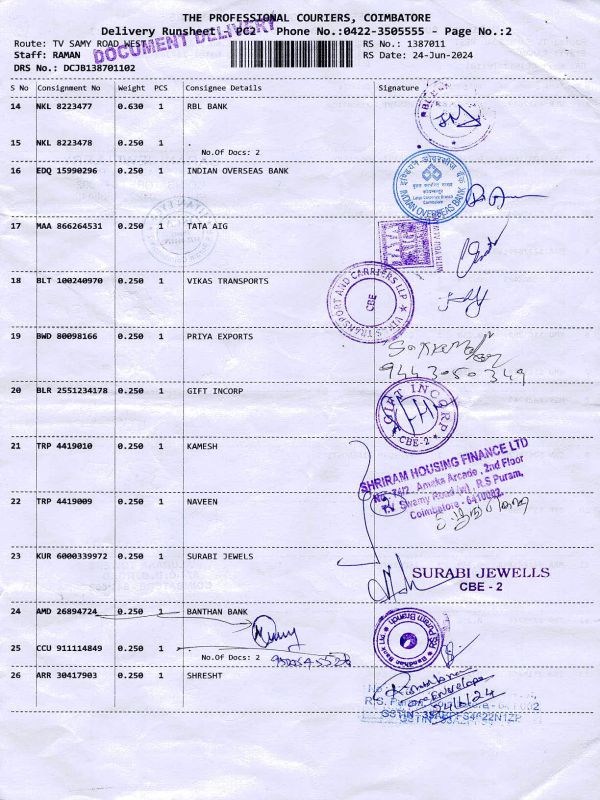 THE PROFESSIONAL COURIERS, COIMBATORE
Delivery Runsheet - PC2 - Phone No.:0422-3505555 - Page No.:2
Route: TV SAMY ROAD WEST
RS No.: 1387011
Staff: RAMAN
RS Date: 24-Jun-2024
DRS No.: DCJB138701102
DOCUMENT DELIVERY
S No Consignment No Weight PCS Consignee Details Signature
14 NKL 8223477 0.630 1 RBL BANK
15 NKL 8223478 0.250 1 .
No.Of Docs: 2
16 EDQ 15990296 0.250 1 INDIAN OVERSEAS BANK
INDIAN OVERSEAS BANK
17 MAA 866264531 0.250 1 TATA AIG
18 BLT 100240970 0.250 1 VIKAS TRANSPORTS
TRANSPORT AND CARRIERS LLP
CBE
19 BWD 80098166 0.250 1 PRIYA EXPORTS
9443050349
20 BLR 2551234178 0.250 1 GIFT INCORP
GIFT INCORP
CBE-2
21 TRP 4419010 0.250 1 KAMESH
SHRIRAM HOUSING FINANCE LTD
No. 74/2, Amaka Arcade, 2nd Floor
T.V. Swamy Road (w), R.S Puram,
Coimbatore, 6410002.
22 TRP 4419009 0.250 1 NAVEEN
23 KUR 6000339972 0.250 1 SURABI JEWELS
SURABI JEWELLS
CBE - 2
24 AMD 26894724 0.250 1 BANTHAN BANK
25 CCU 911114849 0.250 1 .
No.Of Docs: 2
26 ARR 30417903 0.250 1 SHRESHT
24/6/24
R.S. Puram